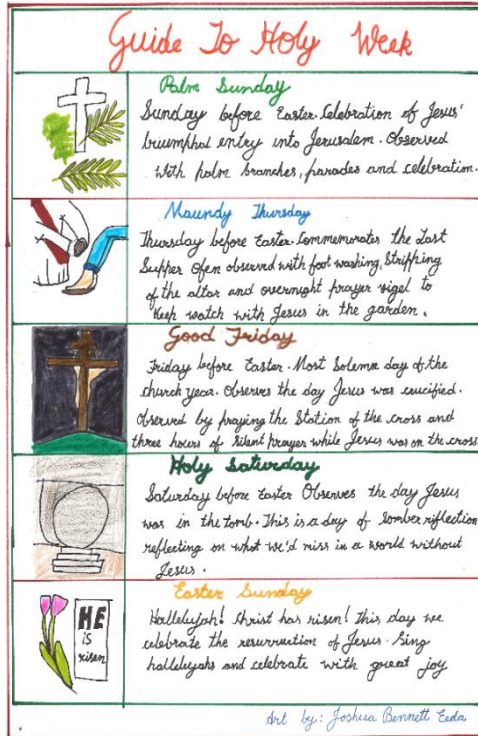 Guide To Holy Week
Palm Sunday
Sunday before Easter. Celebration of Jesus'
triumphal entry into Jerusalem. Observed
with palm branches, parades and celebration.
Maundy Thursday
Thursday before Easter. Commemorates the Last
Supper Ofen observed with foot washing, Stripping
of the altar and overnight prayer vigel to
Keep watch with Jesus in the garden.
Good Friday
Friday before Easter. Most Solemn day of the
church year. Observes the day Jesus was crucified.
Observed by praying the Station of the cross and
three hours of silent prayer while Jesus was on the cross
Holy Saturday
Saturday before Easter Observes the day Jesus
was in the tomb. This is a day of somber riflection
reflecting on what we'd miss in a world without
Jesus.
Easter Sunday
HE
is
risen
Hallelujah! Christ has risen! This day we
celebrate the resurruction of Jesus. Sing
hallelujahs and celebrate with great joy
Art by: Joshua Bennett Eeda